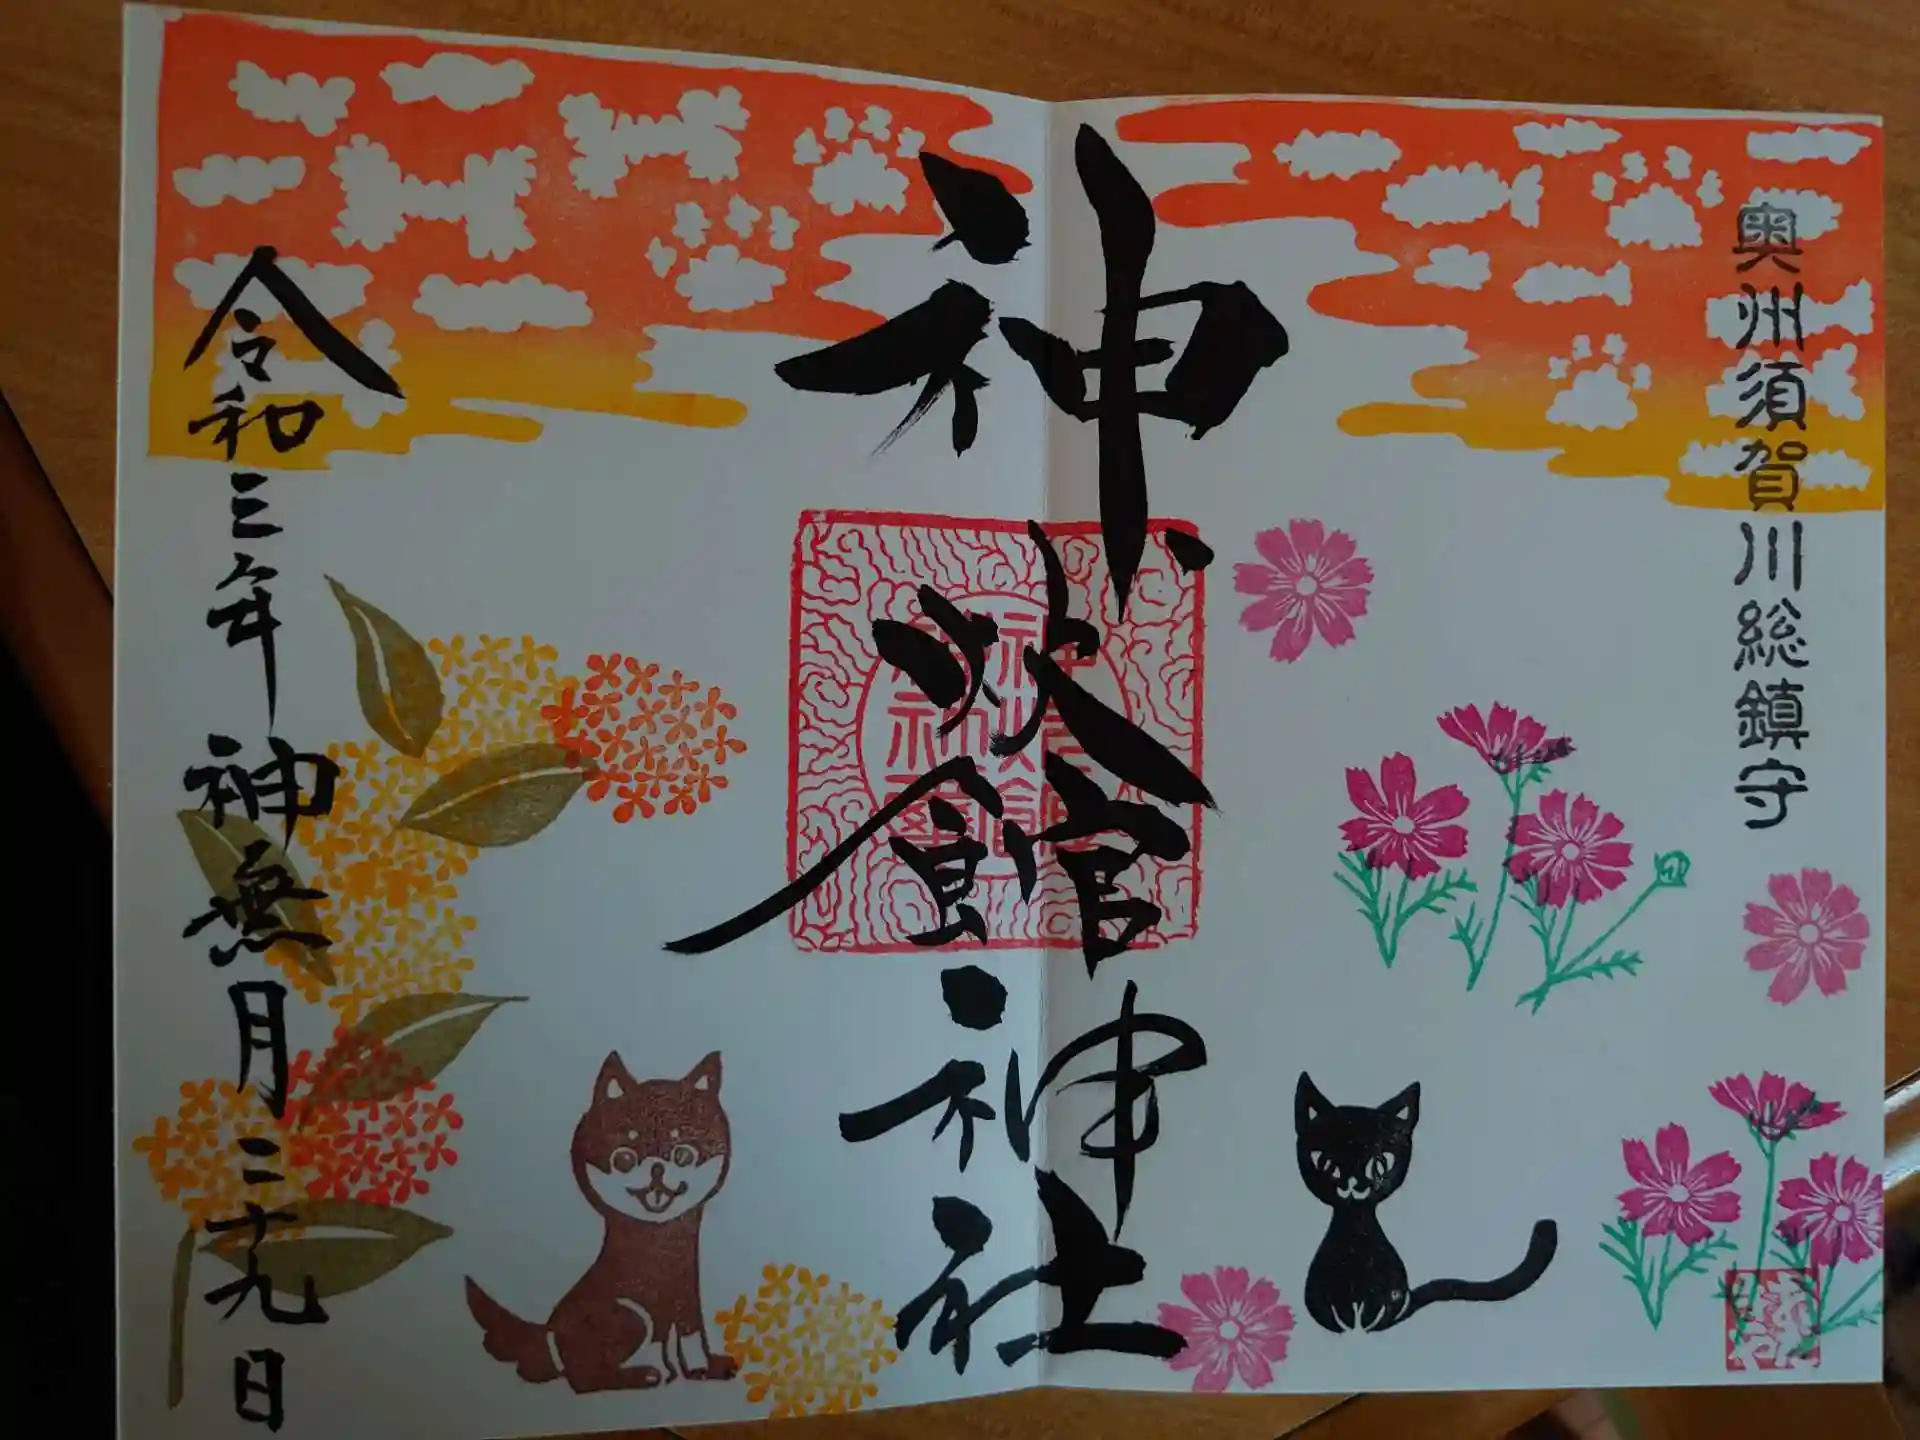 奥州須賀川総鎮守
神炊館神社
令和三年神無月二十九日